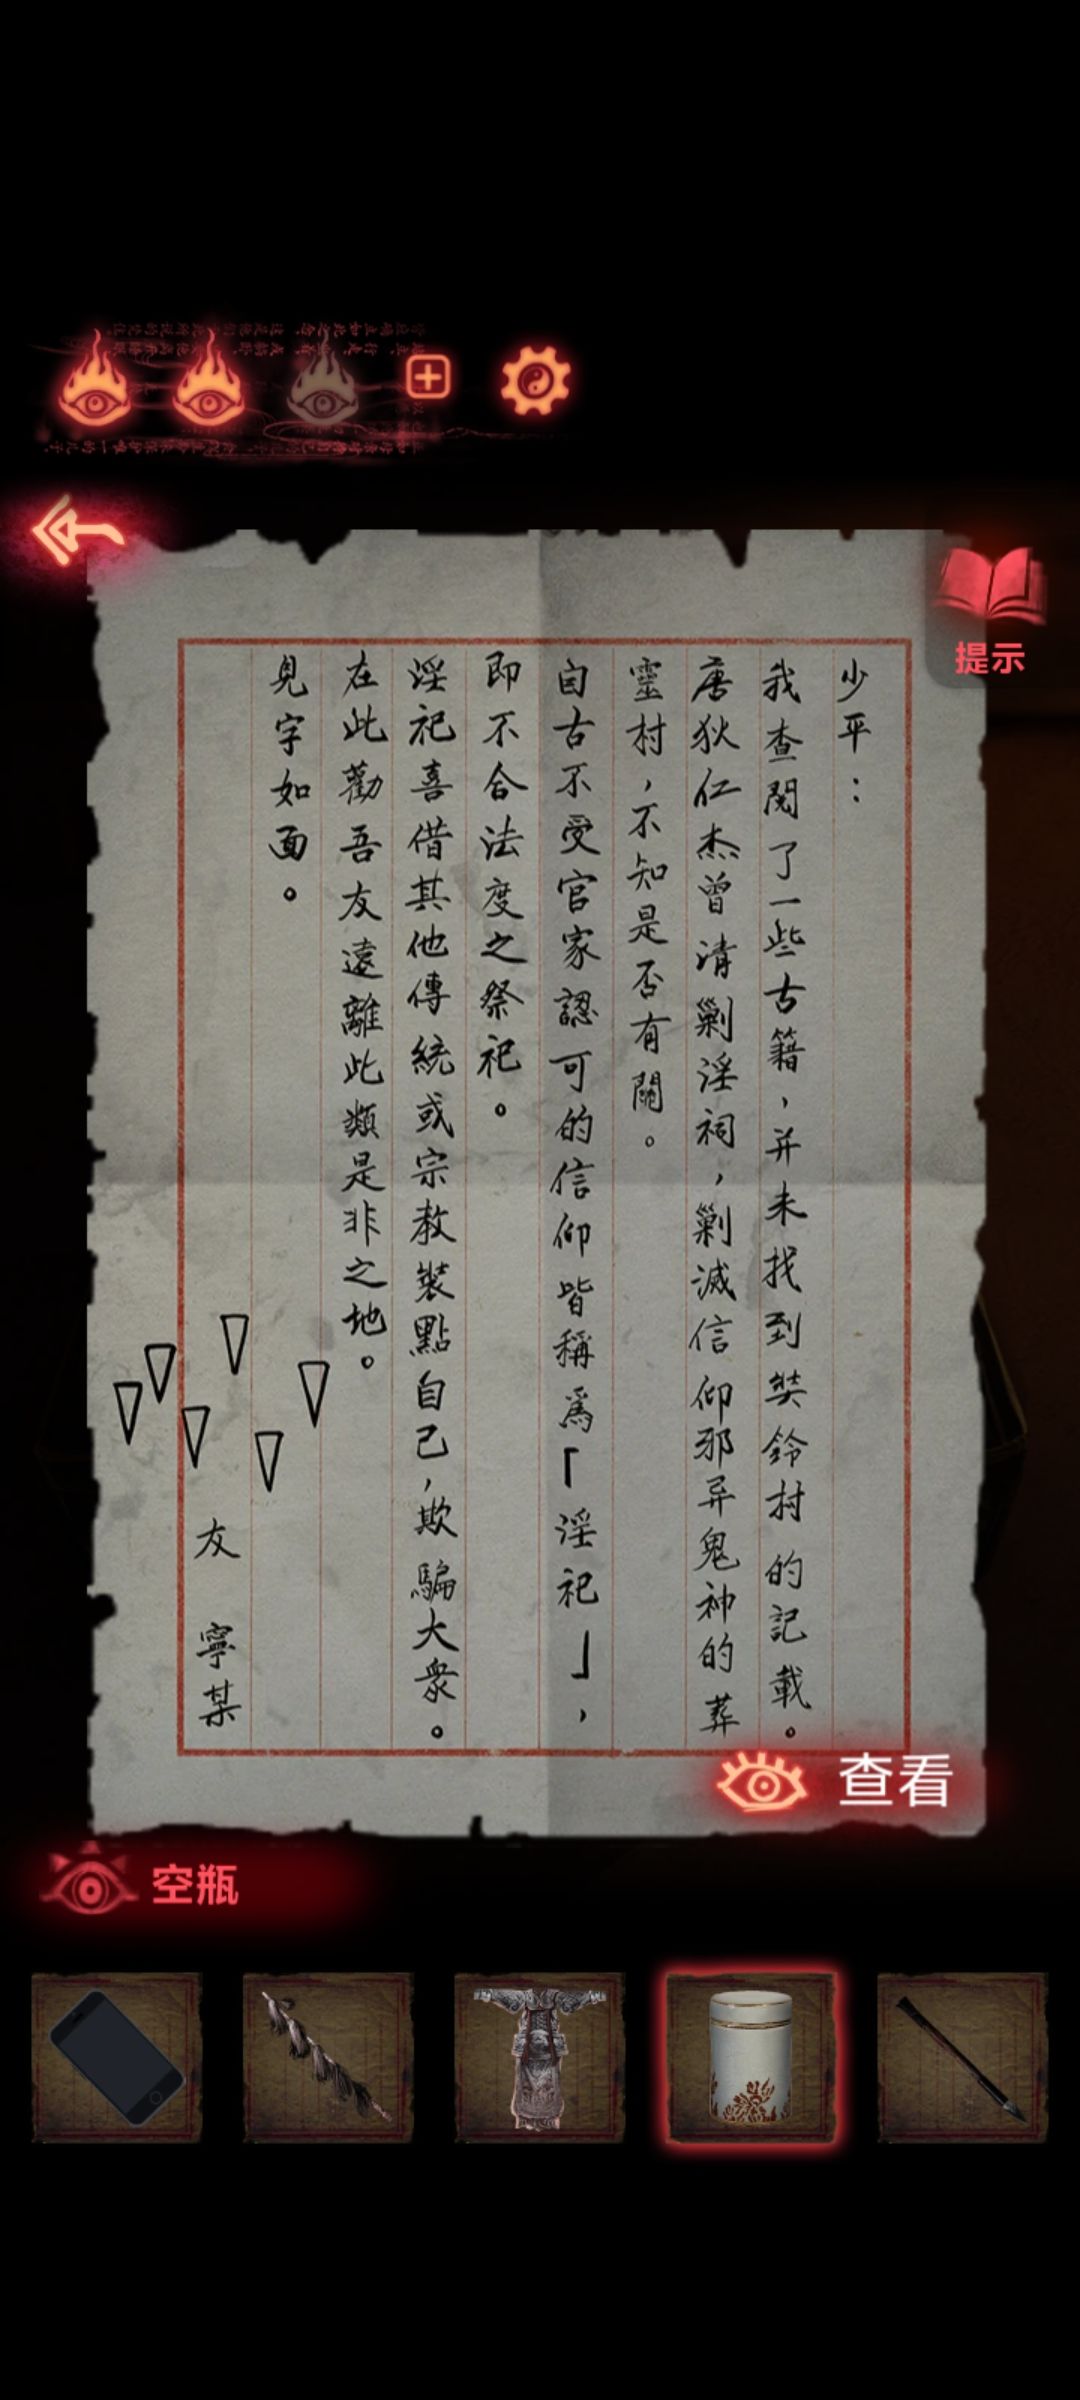 提示
少平：
我查閱了一些古籍，并未找到奘鈴村的記載。
唐狄仁杰曾清剿淫祠，剿滅信仰邪异鬼神的葬
靈村，不知是否有關。
自古不受官家認可的信仰皆稱爲「淫祀」，
即不合法度之祭祀。
淫祀喜借其他傳統或宗教裝點自己，欺騙大衆。
在此勸吾友遠離此類是非之地。
見字如面。
友 寧某
查看
空瓶